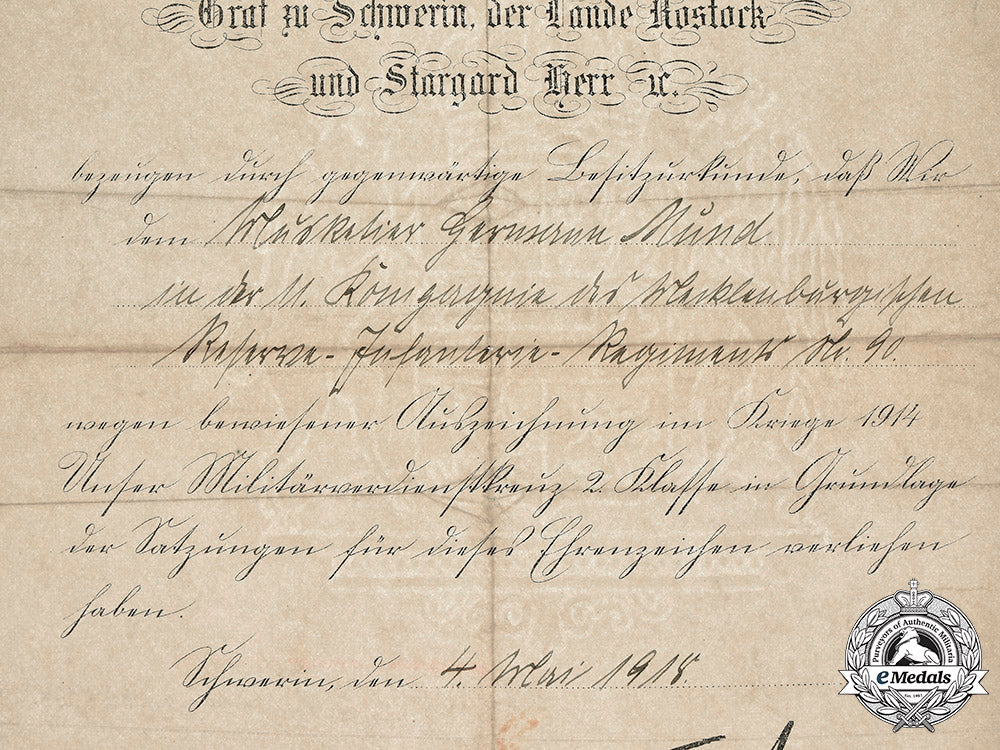 Graf zu Schwerin, der Lande Rostock
und Stargard Herr ꝛc.
bezeugen durch gegenwärtige Besitzurkunde, daß Wir
dem Musketier Hermann Mund
in der 11. Kompagnie des Mecklenburgischen
Reserve-Infanterie-Regiments Nr. 90.
wegen bewiesener Auszeichnung im Kriege 1914
Unser Militärverdienstkreuz 2. Klasse in Grundlage
der Satzungen für dieses Ehrenzeichen verliehen
haben.
Schwerin, den 4. Mai 1918.
Purveyors of Authentic Militaria
eMedals
Est. 1967